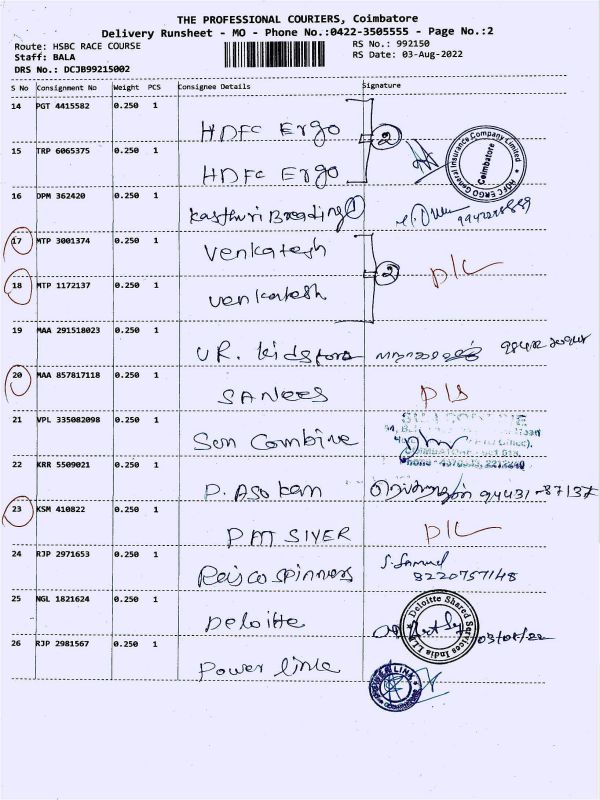 THE PROFESSIONAL COURIERS, Coimbatore
Delivery Runsheet - MO - Phone No.:0422-3505555 - Page No.:2
Route: HSBC RACE COURSE RS No.: 992150
Staff: BALA RS Date: 03-Aug-2022
DRS No.: DCJB99215002
S No Consignment No Weight PCS Consignee Details Signature
14 PGT 4415582 0.250 1 HDFC Ergo 2
HDFC ERGO General Insurance Company Limited Coimbatore
15 TRP 6065375 0.250 1 HDFC Ergo
16 DPM 362420 0.250 1 Kasthuri Breading
17 MTP 3001374 0.250 1 Venkatesh 2 D/L
18 MTP 1172137 0.250 1 Venkatesh
19 MAA 291518023 0.250 1 UR. kidstore
20 MAA 857817118 0.250 1 SANees D/S
21 VPL 335082098 0.250 1 Sun Combine
22 KRR 5509021 0.250 1 P. Asokan 94431-87137
23 KSM 410822 0.250 1 D/L
24 RJP 2971653 0.250 1 Reisco spinners S. Samuel
8220757148
25 NGL 1821624 0.250 1 Deloitte Deloitte Shared Services India LLP 03/08/22
26 RJP 2981567 0.250 1 Power link POWER LINK